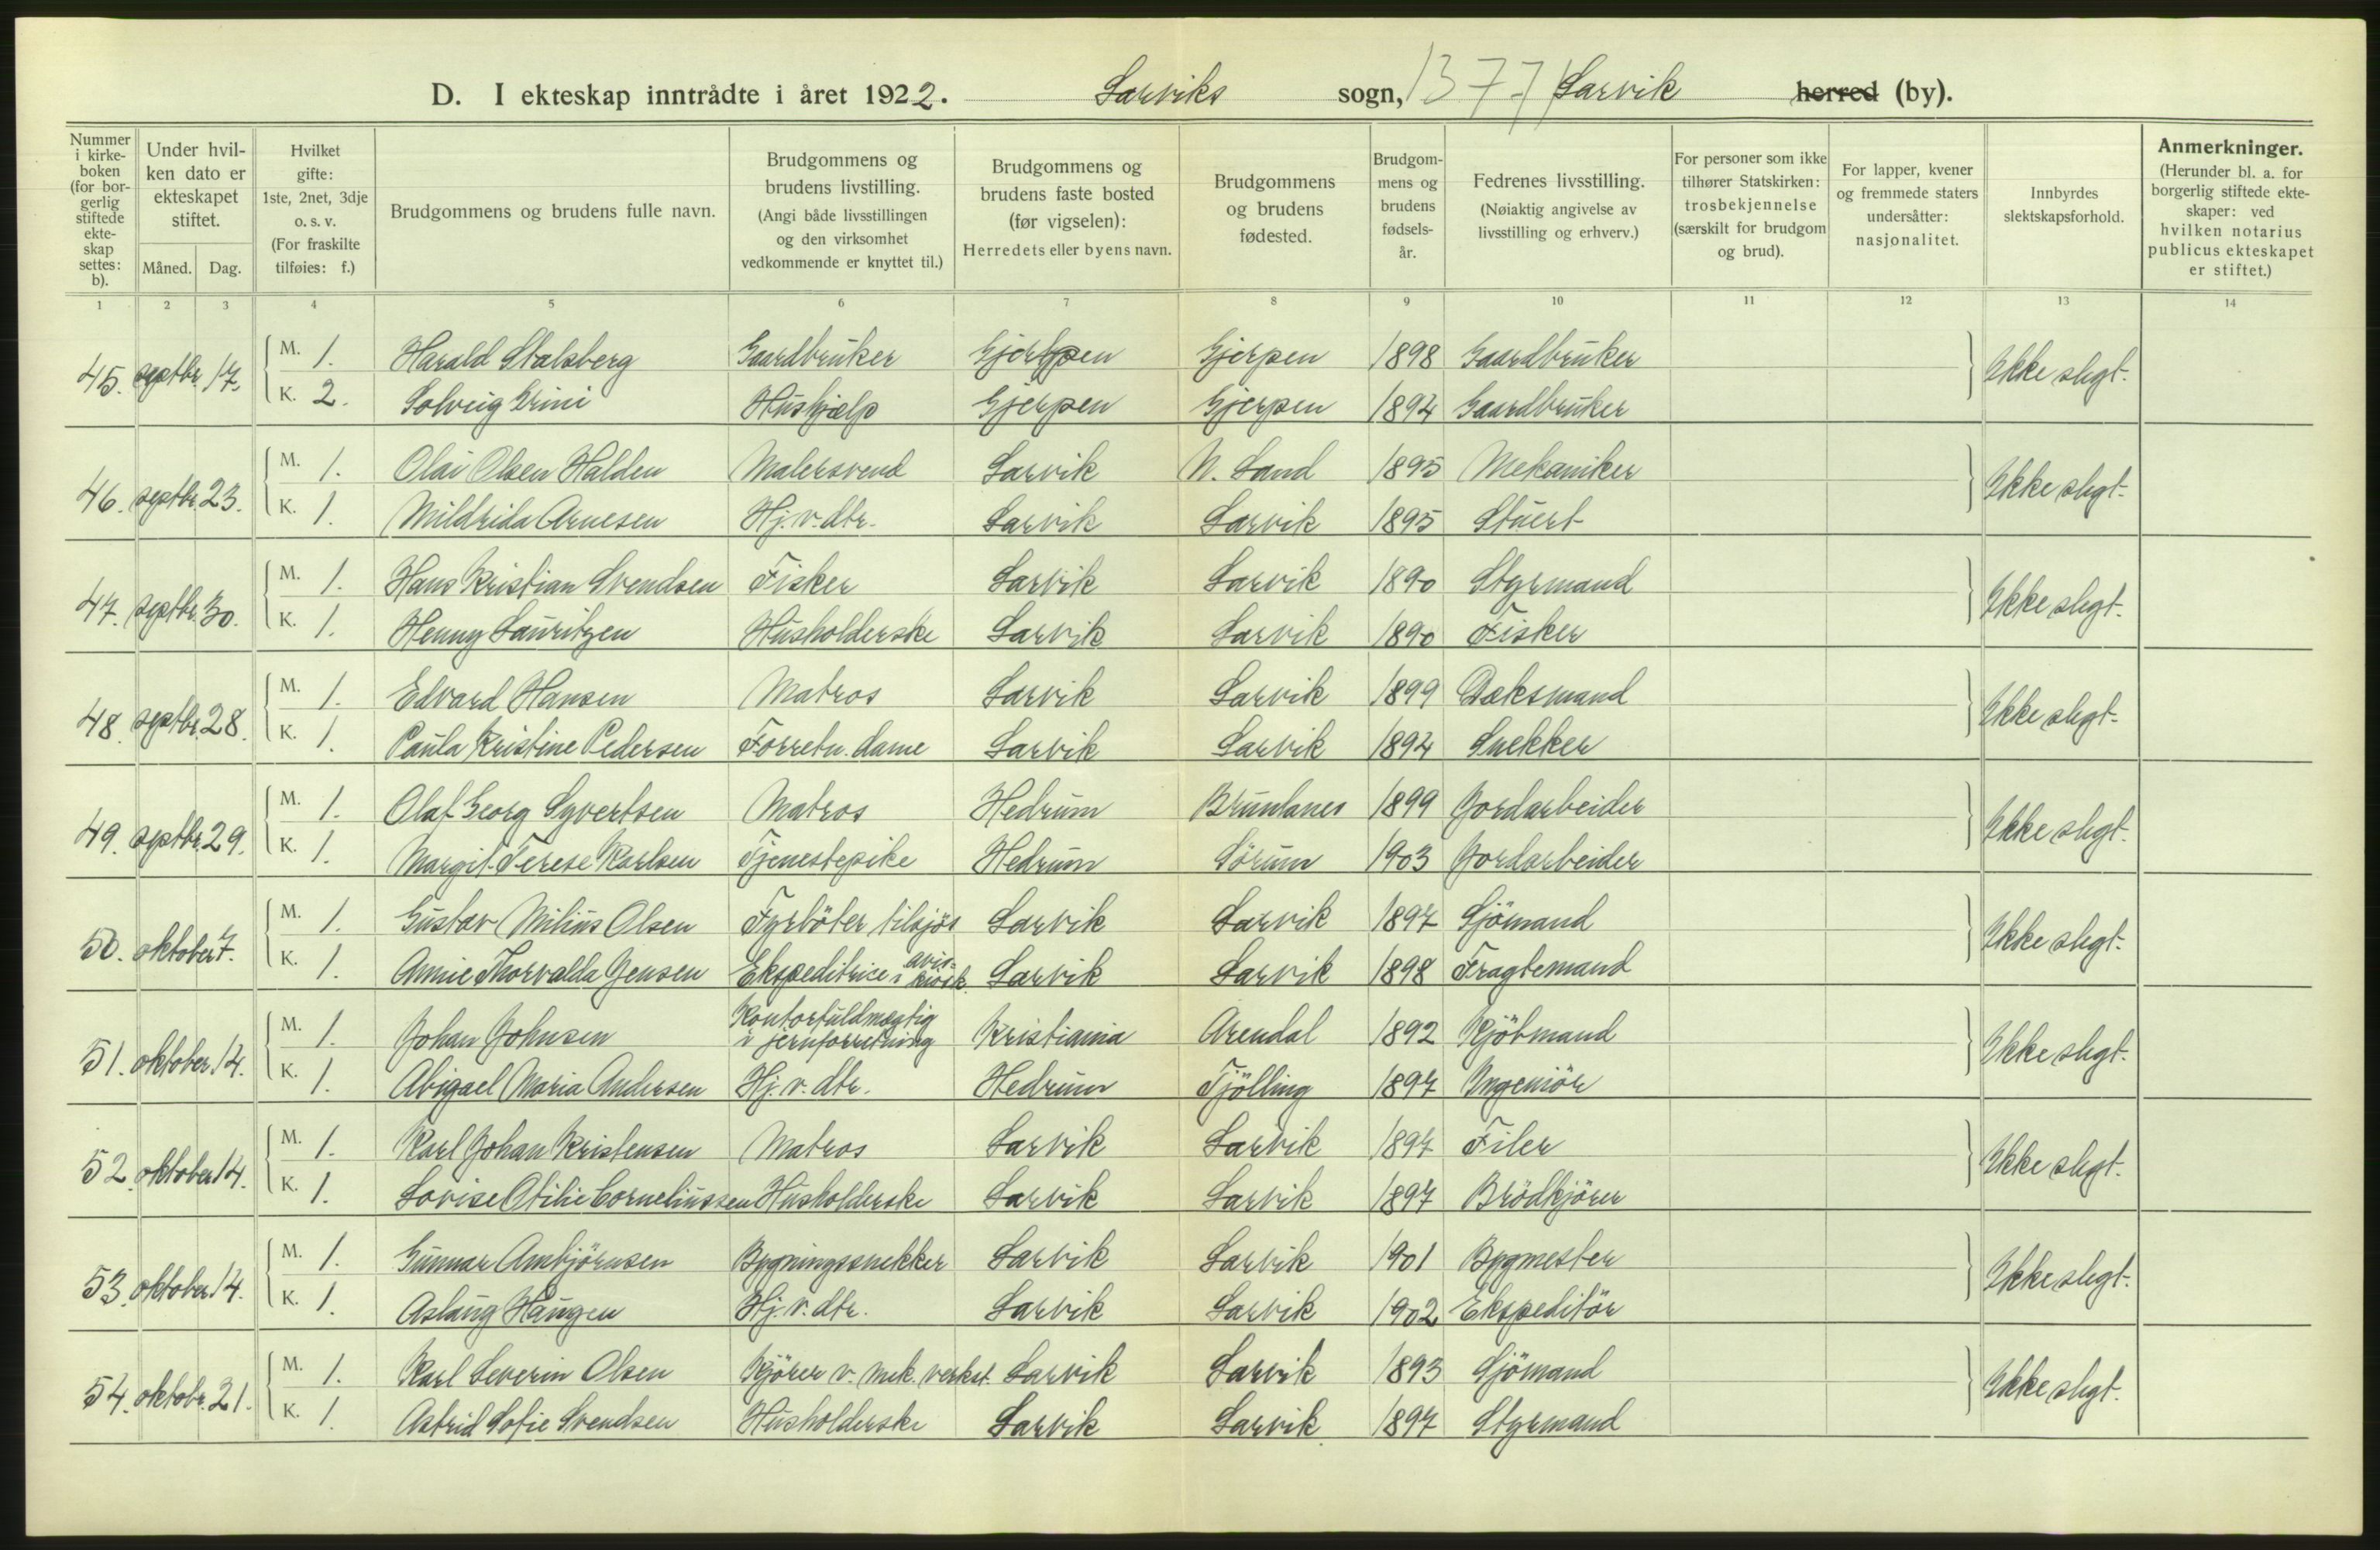 D. I ekteskap inntrådte i året 1922. Larviks sogn, 1377 Larvik herred (by).
Nummer i kirkeboken (for borgerlig stiftede ekteskap settes: b).
Under hvilken dato er ekteskapet stiftet.
Måned. Dag.
Hvilket gifte: 1ste, 2net, 3dje o. s. v. (For fraskilte tilføies: f.)
Brudgommens og brudens fulle navn.
Brudgommens og brudens livstilling. (Angi både livsstillingen og den virksomhet vedkommende er knyttet til.)
Brudgommens og brudens faste bosted (før vigselen): Herredets eller byens navn.
Brudgommens og brudens fødested.
Brudgommens og brudens fødselsår.
Fedrenes livsstilling. (Nøiaktig angivelse av livsstilling og erhverv.)
For personer som ikke tilhører Statskirken: trosbekjennelse (særskilt for brudgom og brud).
For lapper, kvener og fremmede staters undersåtter: nasjonalitet.
Innbyrdes slektskapsforhold.
Anmerkninger. (Herunder bl. a. for borgerlig stiftede ekteskaper: ved hvilken notarius publicus ekteskapet er stiftet.)
1 2 3 4 5 6 7 8 9 10 11 12 13 14
45. septbr. 17. M. 1. Harald Stalsberg Gaardbruker Gjerpen Gjerpen 1898 Gaardbruker Ikke slegt.
K. 2. Solveig Grini Hushjælp Gjerpen Gjerpen 1894 Gaardbruker
46. septbr. 23. M. 1. Olai Olsen Halden Malersvend Larvik N. Land 1895 Mekaniker Ikke slegt.
K. 1. Mildrida Arnesen Hj. v. dtr. Larvik Larvik 1895 Stuert
47. septbr. 30. M. 1. Hans Kristian Svendsen Fisker Larvik Larvik 1890 Styrmand Ikke slegt.
K. 1. Henny Lauritzen Husholderske Larvik Larvik 1890 Fisker
48. septbr. 28. M. 1. Edvard Hansen Matros Larvik Larvik 1899 Dæksmand Ikke slegt.
K. 1. Paula Kristine Pedersen Forretn. dame Larvik Larvik 1894 Snekker
49. septbr. 29. M. 1. Olaf Georg Syvertsen Matros Hedrum Brunlanes 1899 Jordarbeider Ikke slegt.
K. 1. Margit Terese Karlsen Tjenestepike Hedrum Sörum 1903 Jordarbeider
50. oktober 7. M. 1. Gustav Milius Olsen Fyrböter tilsjös Larvik Larvik 1897 Sjömand Ikke slegt.
K. 1. Annie Thorvalda Jensen Ekspeditrice i avis-kiosk Larvik Larvik 1898 Fragtemand
51. oktober 14. M. 1. Johan Johnsen Kontorfuldmægtig i jernforretning Kristiania Arendal 1892 Kjöbmand Ikke slegt.
K. 1. Abigael Maria Andersen Hj. v. dtr. Hedrum Tjölling 1897 Ingeniör
52. oktober 14. M. 1. Karl Johan Kristensen Matros Larvik Larvik 1897 Filer Ikke slegt.
K. 1. Lovise Otilie Corneliussen Husholderske Larvik Larvik 1897 Brödkjörer
53. oktober 14. M. 1. Gunnar Ambjörnsen Bygningssnekker Larvik Larvik 1901 Bygmester Ikke slegt.
K. 1. Aslaug Haugen Hj. v. dtr. Larvik Larvik 1902 Ekspeditör
54. oktobr. 21. M. 1. Karl Severin Olsen Kjörer v. mek. verkst. Larvik Larvik 1893 Sjömand Ikke slegt.
K. 1. Astrid Sofie Svendsen Husholderske Larvik Larvik 1897 Styrmand